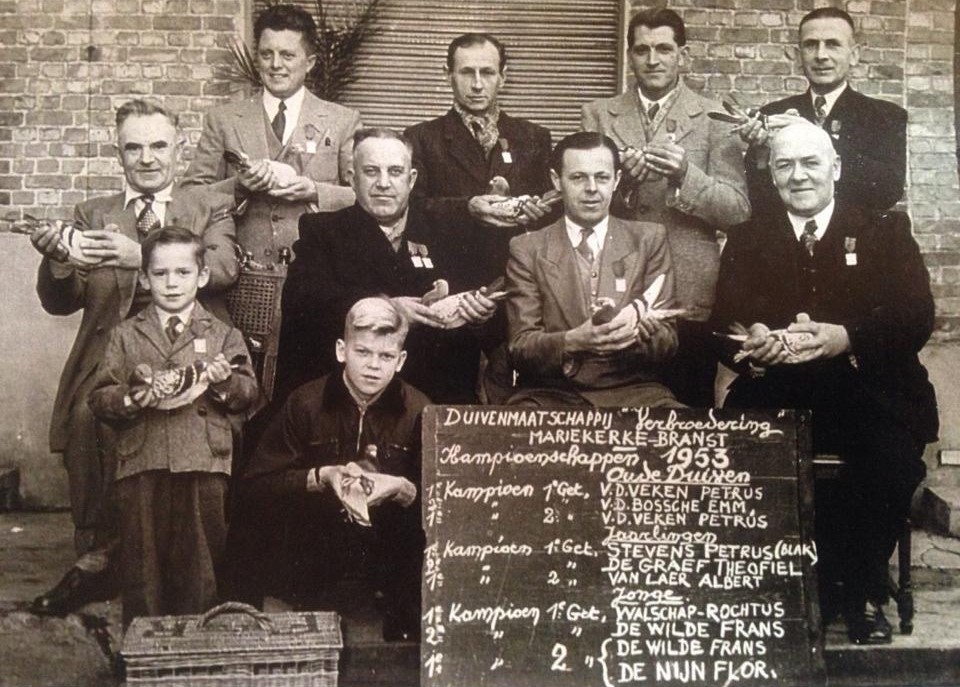 DUIVENMAATSCHAPPIJ "Verbroedering"
MARIEKERKE-BRANST
Kampioenschappen 1953
Oude Duiven
1e Kampioen 1e Get, V.D.VEKEN PETRUS
2e " " V.D.BOSSCHE EMM,
1e " 2e " V.D.VEKEN PETRUS
Jaarlingen
1e Kampioen 1e Get, STEVENS PETRUS(BLAK)
2e " " DE GRAEF THEOFIEL
1e " 2 " VAN LAER ALBERT
Jonge.
1e Kampioen 1e Get, WALSCHAP-ROCHTUS
2e " " DE WILDE FRANS
1e " 2 " { DE WILDE FRANS
DE NIJN FLOR.